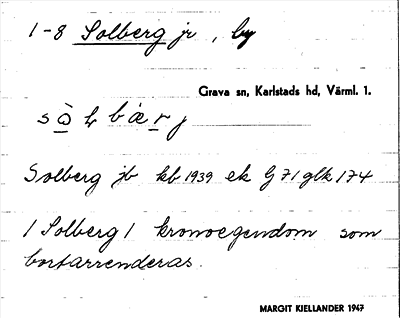 1-8 Solberg jr, by
Grava sn, Karlstads hd, Värml. l.
Solberg jb kb 1939 ek G 71 glk 174
/Solberg/ kronoegendom som
bortarrenderas.
MARGIT KJELLANDER 1947